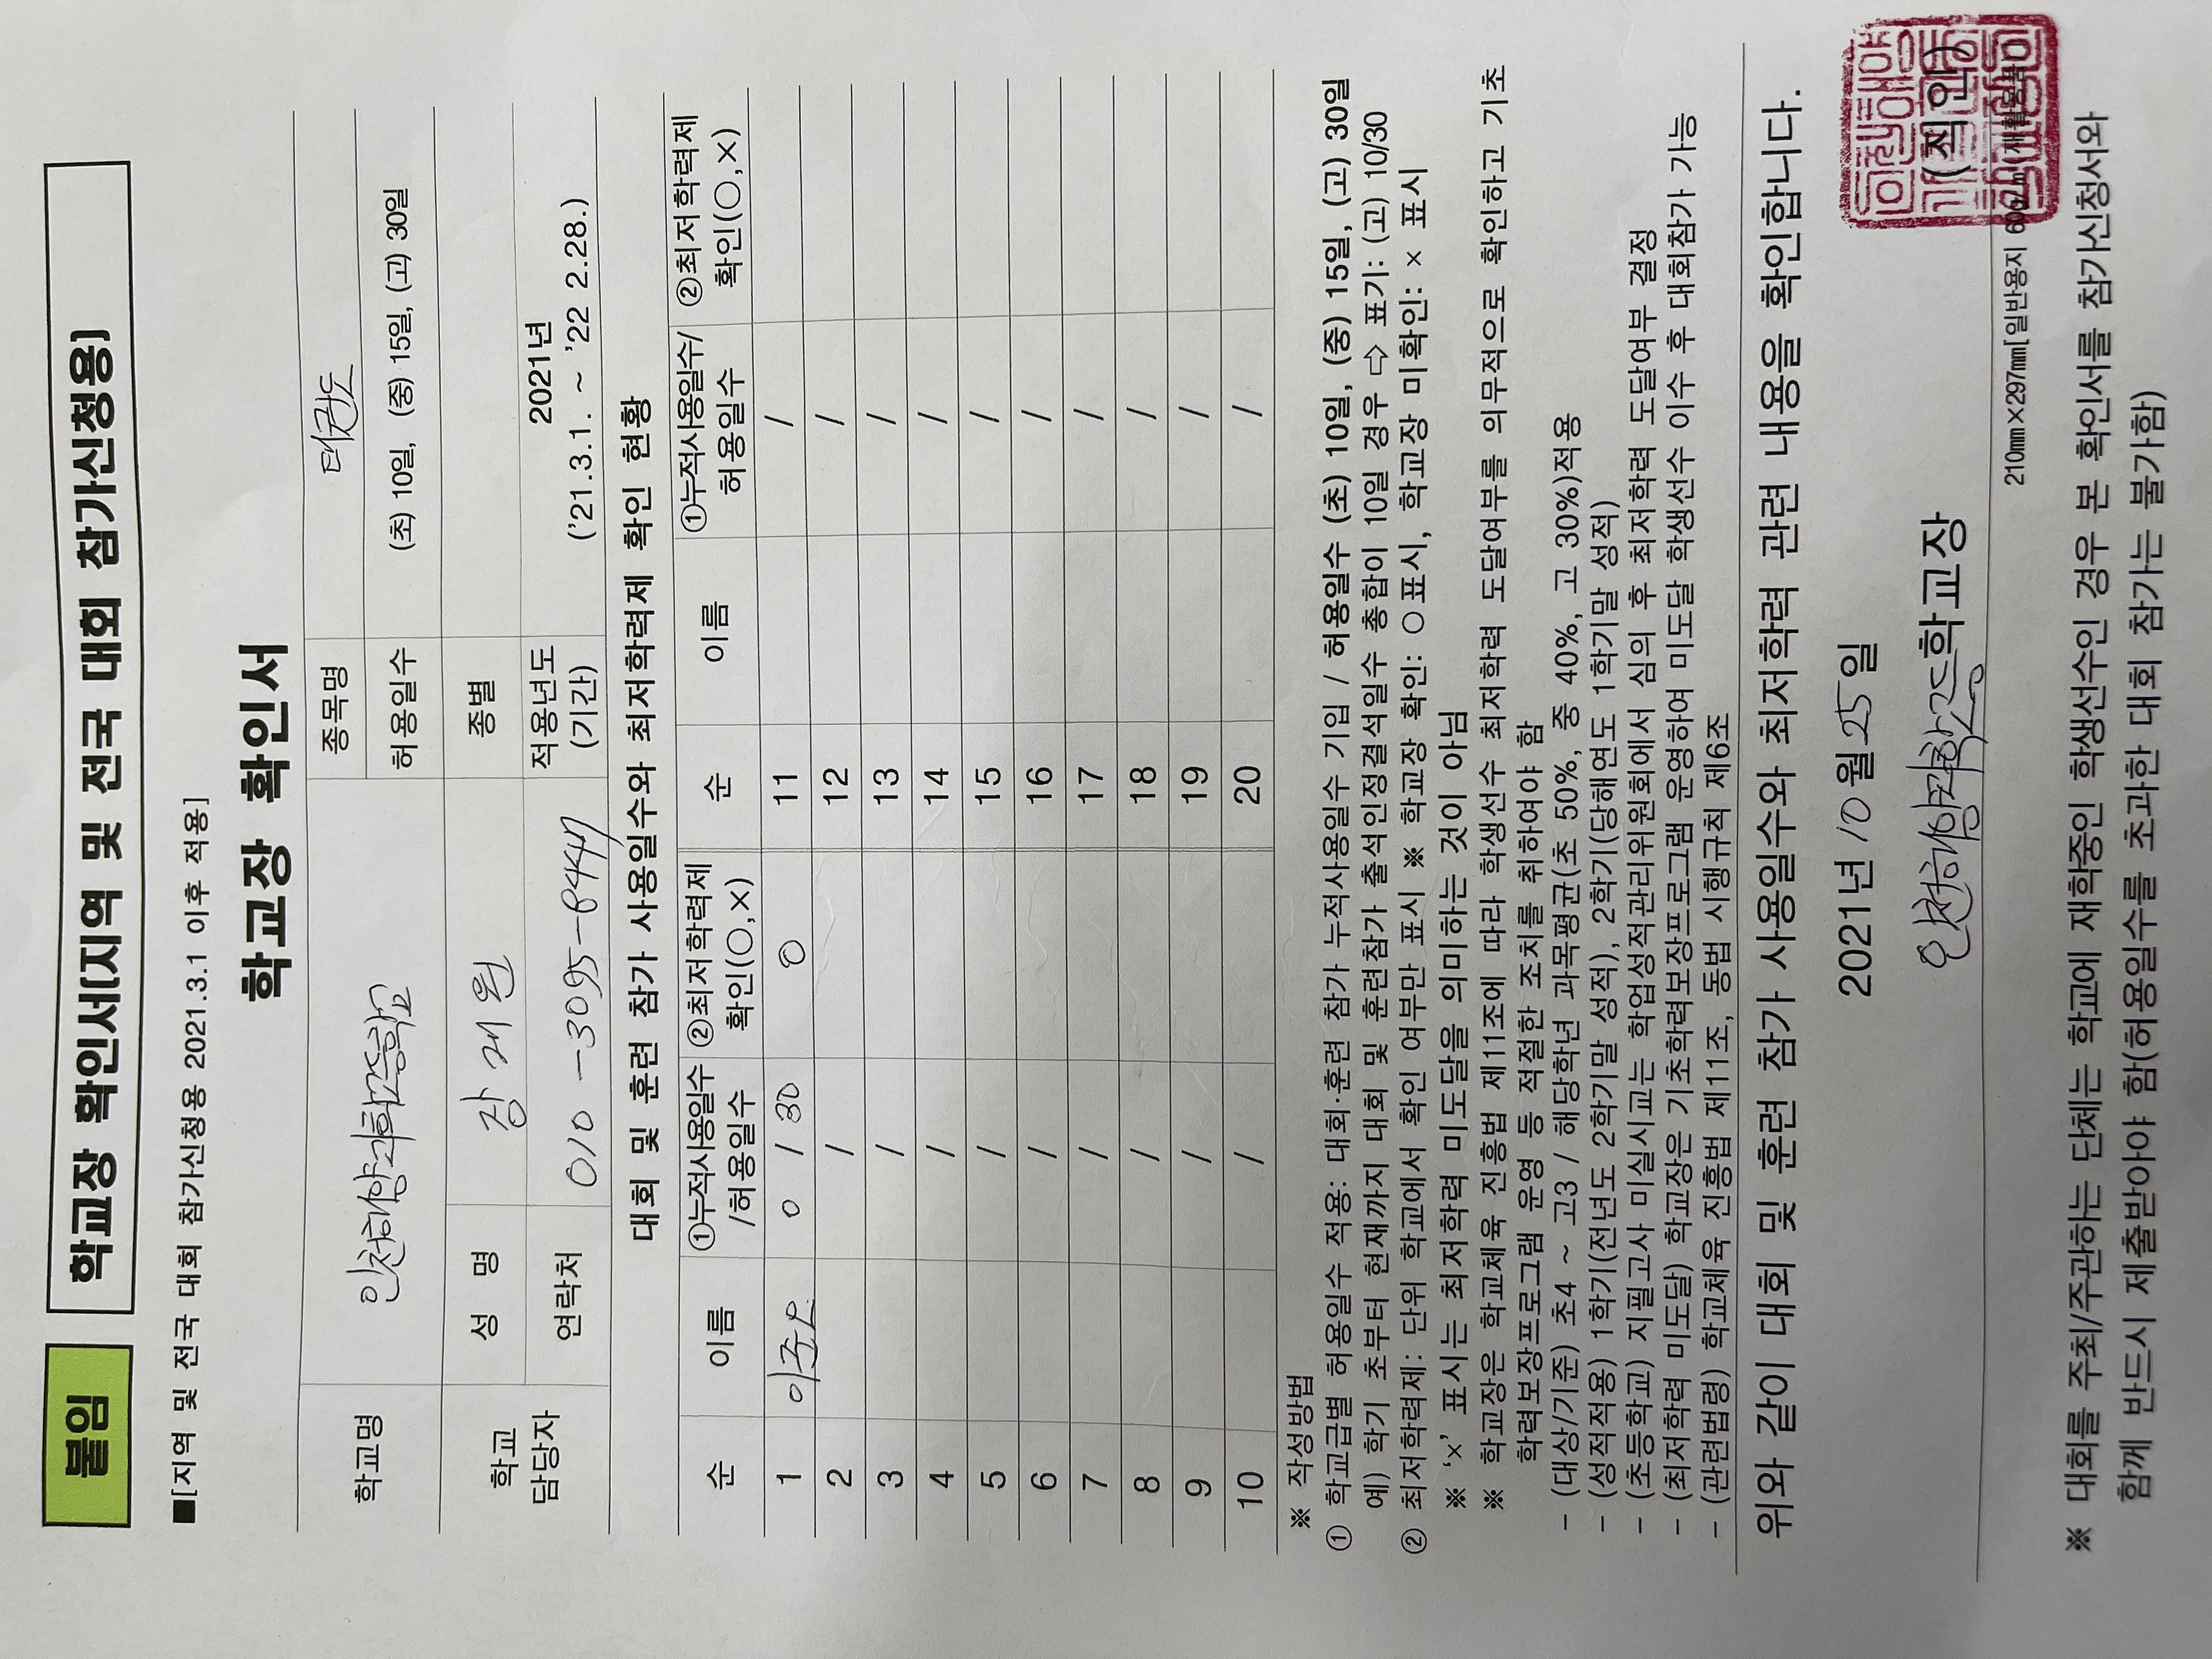 붙임
학교장 확인서(지역 및 전국 대회 참가신청용)
■[지역 및 전국 대회 참가신청용 2021.3.1 이후 적용]
학교장 확인서
학교명 인천해양과학고등학교 종목명 태권도
허용일수 (초) 10일, (중) 15일, (고) 30일
학교 담당자 성 명 강 재 원 종별
연락처 010-3095-8447 적용년도 (기간) 2021년
('21.3.1. ~ '22 2.28.)
대회 및 훈련 참가 사용일수와 최저학력제 확인 현황
순 이름 ①누적사용일수/허용일수 ②최저학력제 확인(○,×) 순 이름 ①누적사용일수/허용일수 ②최저학력제 확인(○,×)
1 0 / 30 ○ 11 /
2 / 12 /
3 / 13 /
4 / 14 /
5 / 15 /
6 / 16 /
7 / 17 /
8 / 18 /
9 / 19 /
10 / 20 /
※ 작성방법
① 학교급별 허용일수 적용: 대회·훈련 참가 누적사용일수 기입 / 허용일수 (초) 10일, (중) 15일, (고) 30일
예) 학기 초부터 현재까지 대회 및 훈련참가 출석인정결석일수 총합이 10일 경우 ⇨ 표기: (고) 10/30
② 최저학력제: 단위 학교에서 확인 여부만 표시 ※ 학교장 확인: ○표시, 학교장 미확인: × 표시
※ '×' 표시는 최저학력 미도달을 의미하는 것이 아님
※ 학교장은 학교체육 진흥법 제11조에 따라 학생선수 최저학력 도달여부를 의무적으로 확인하고 기초
학력보장프로그램 운영 등 적절한 조치를 취하여야 함
- (대상/기준) 초4 ~ 고3 / 해당학년 과목평균(초 50%, 중 40%, 고 30%)적용
- (성적적용) 1학기(전년도 2학기말 성적), 2학기(당해연도 1학기말 성적)
- (초등학교) 지필고사 미실시교는 학업성적관리위원회에서 심의 후 최저학력 도달여부 결정
- (최저학력 미도달) 학교장은 기초학력보장프로그램 운영하여 미도달 학생선수 이수 후 대회참가 가능
- (관련법령) 학교체육 진흥법 제11조, 동법 시행규칙 제6조
위와 같이 대회 및 훈련 참가 사용일수와 최저학력 관련 내용을 확인합니다.
2021년 10월 25일
인천해양과학고등학교장 (직인)
210㎜×297㎜[일반용지 60g/㎡(재활용품)]
※ 대회를 주최/주관하는 단체는 학교에 재학중인 학생선수인 경우 본 확인서를 참가신청서와
함께 반드시 제출받아야 함(허용일수를 초과한 대회 참가는 불가함)